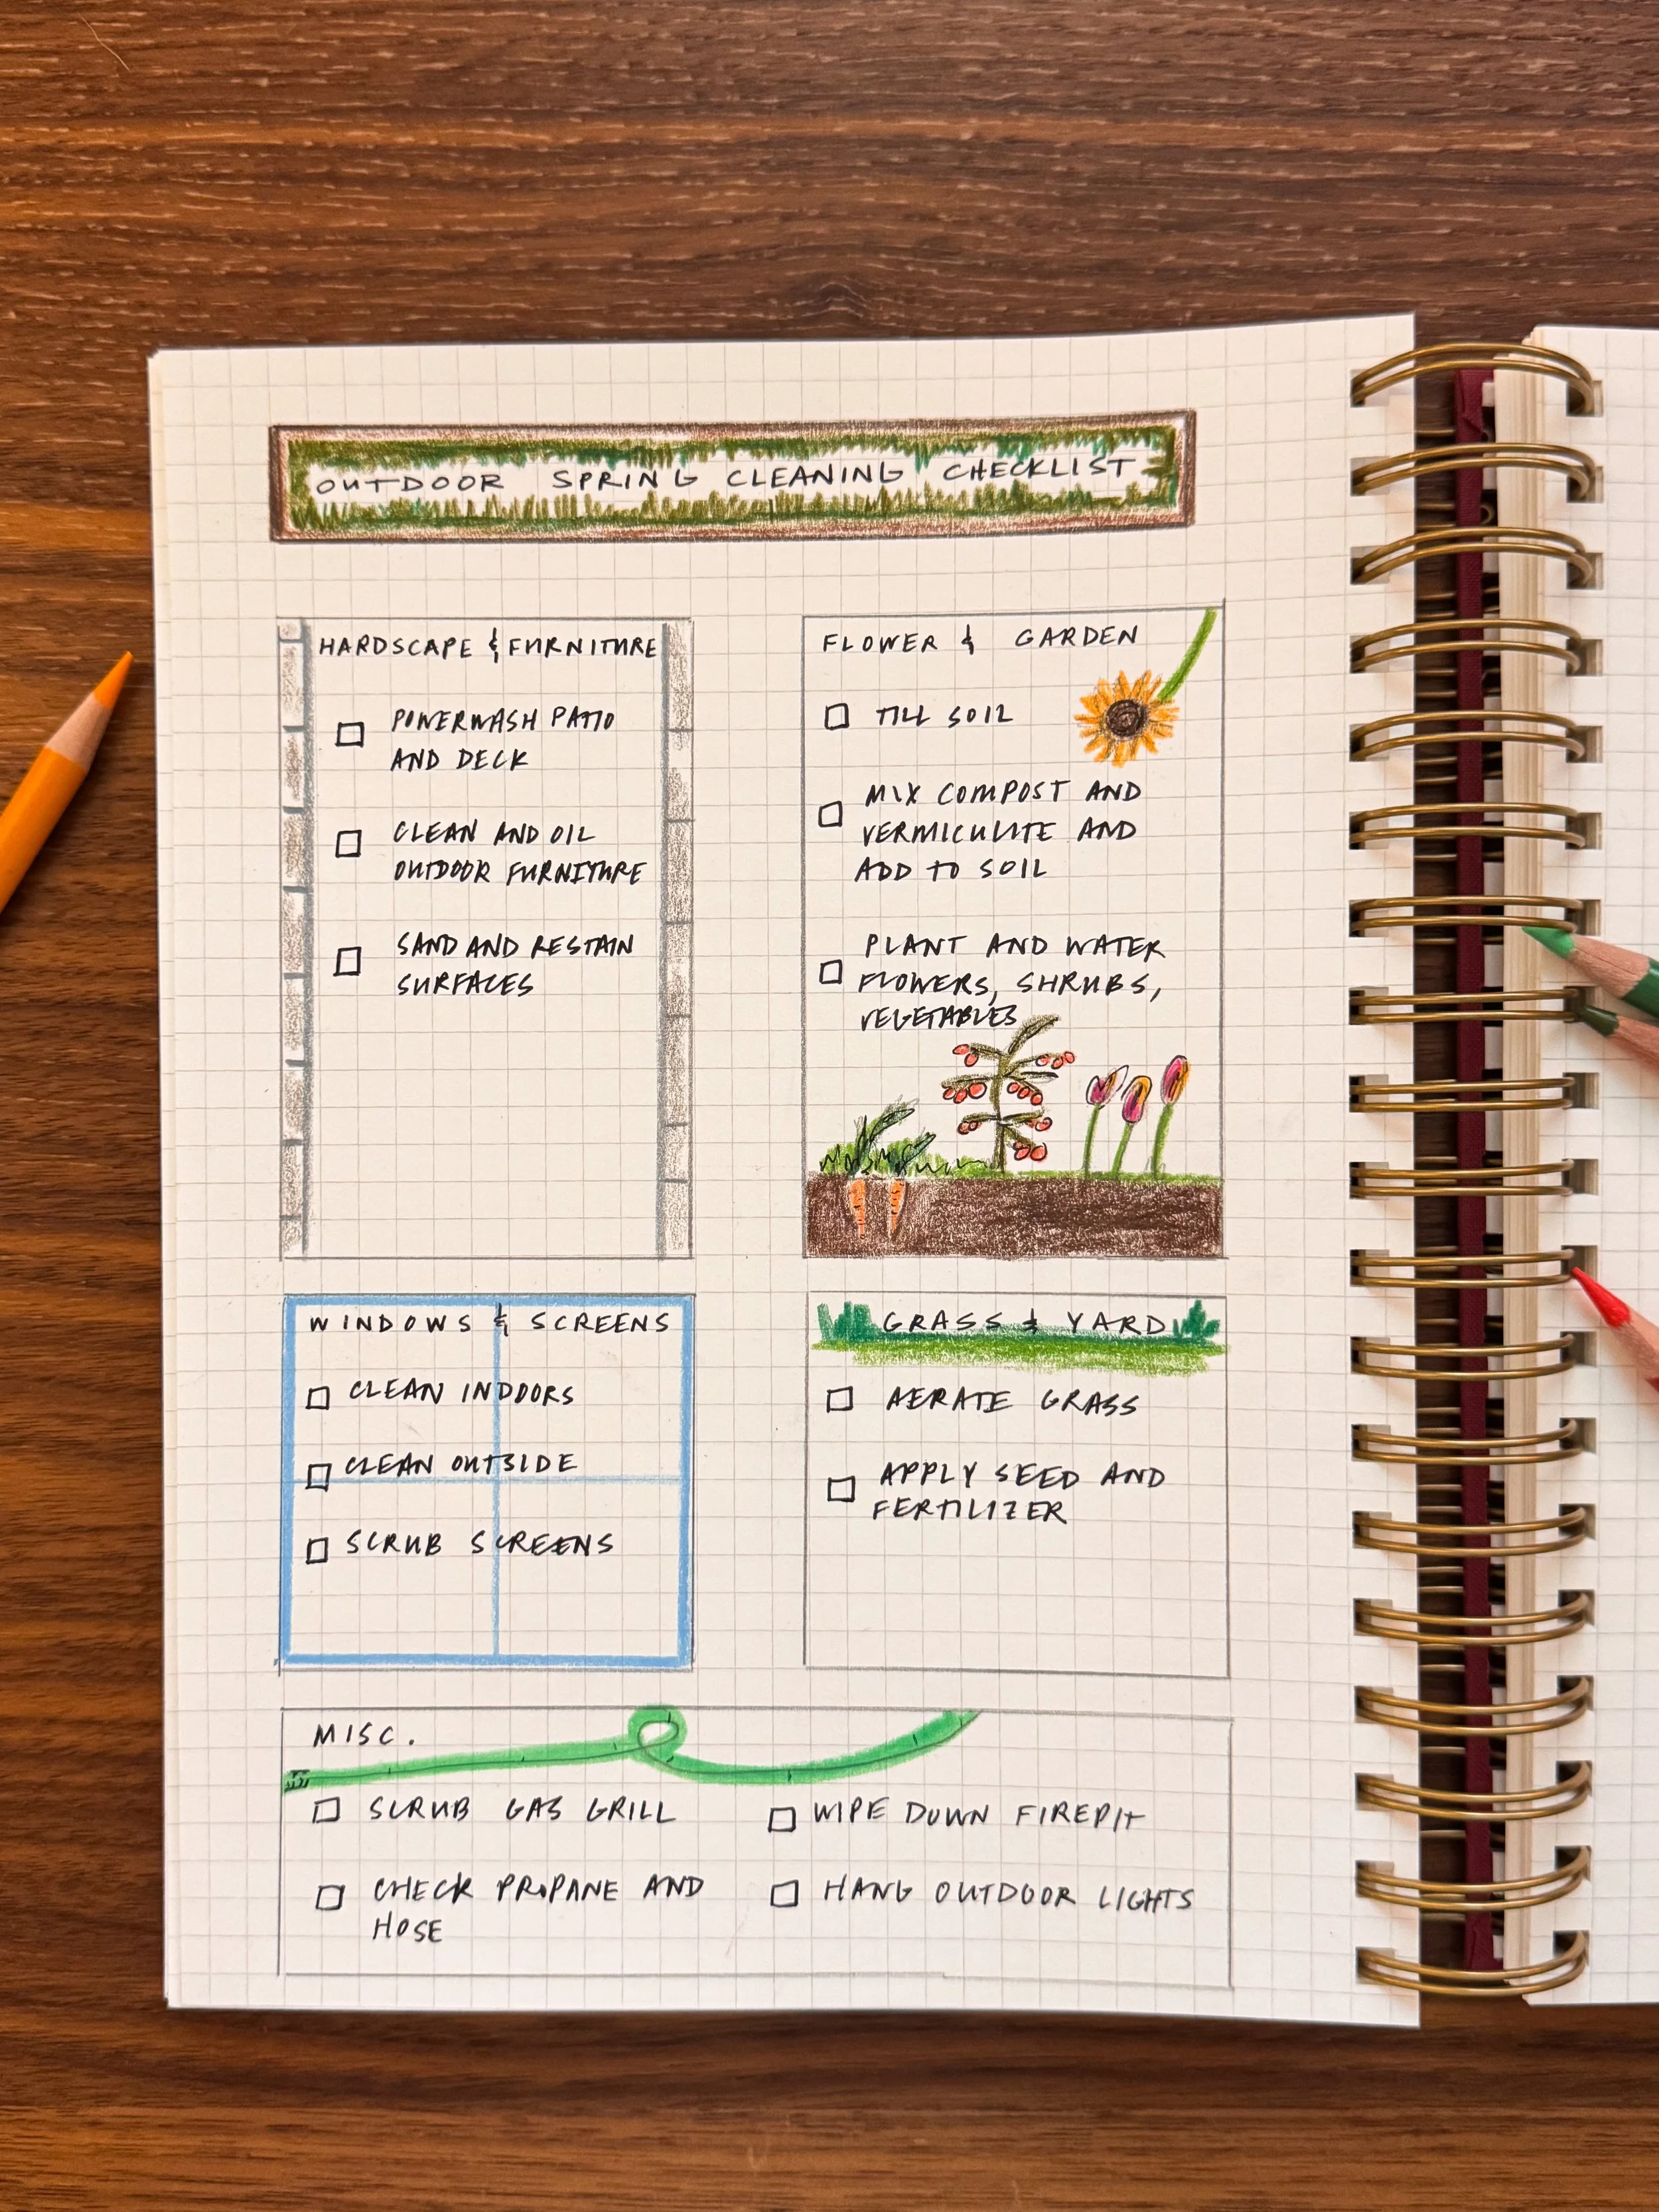 OUTDOOR SPRING CLEANING CHECKLIST
HARDSCAPE & FURNITURE
POWERWASH PATIO
AND DECK
CLEAN AND OIL
OUTDOOR FURNITURE
SAND AND RESTAIN
SURFACES
FLOWER & GARDEN
TILL SOIL
MIX COMPOST AND
VERMICULITE AND
ADD TO SOIL
PLANT AND WATER
FLOWERS, SHRUBS,
VEGETABLES
WINDOWS & SCREENS
CLEAN INDOORS
CLEAN OUTSIDE
SCRUB SCREENS
GRASS & YARD
AERATE GRASS
APPLY SEED AND
FERTILIZER
MISC.
SCRUB GAS GRILL
CHECK PROPANE AND
HOSE
WIPE DOWN FIREPIT
HANG OUTDOOR LIGHTS